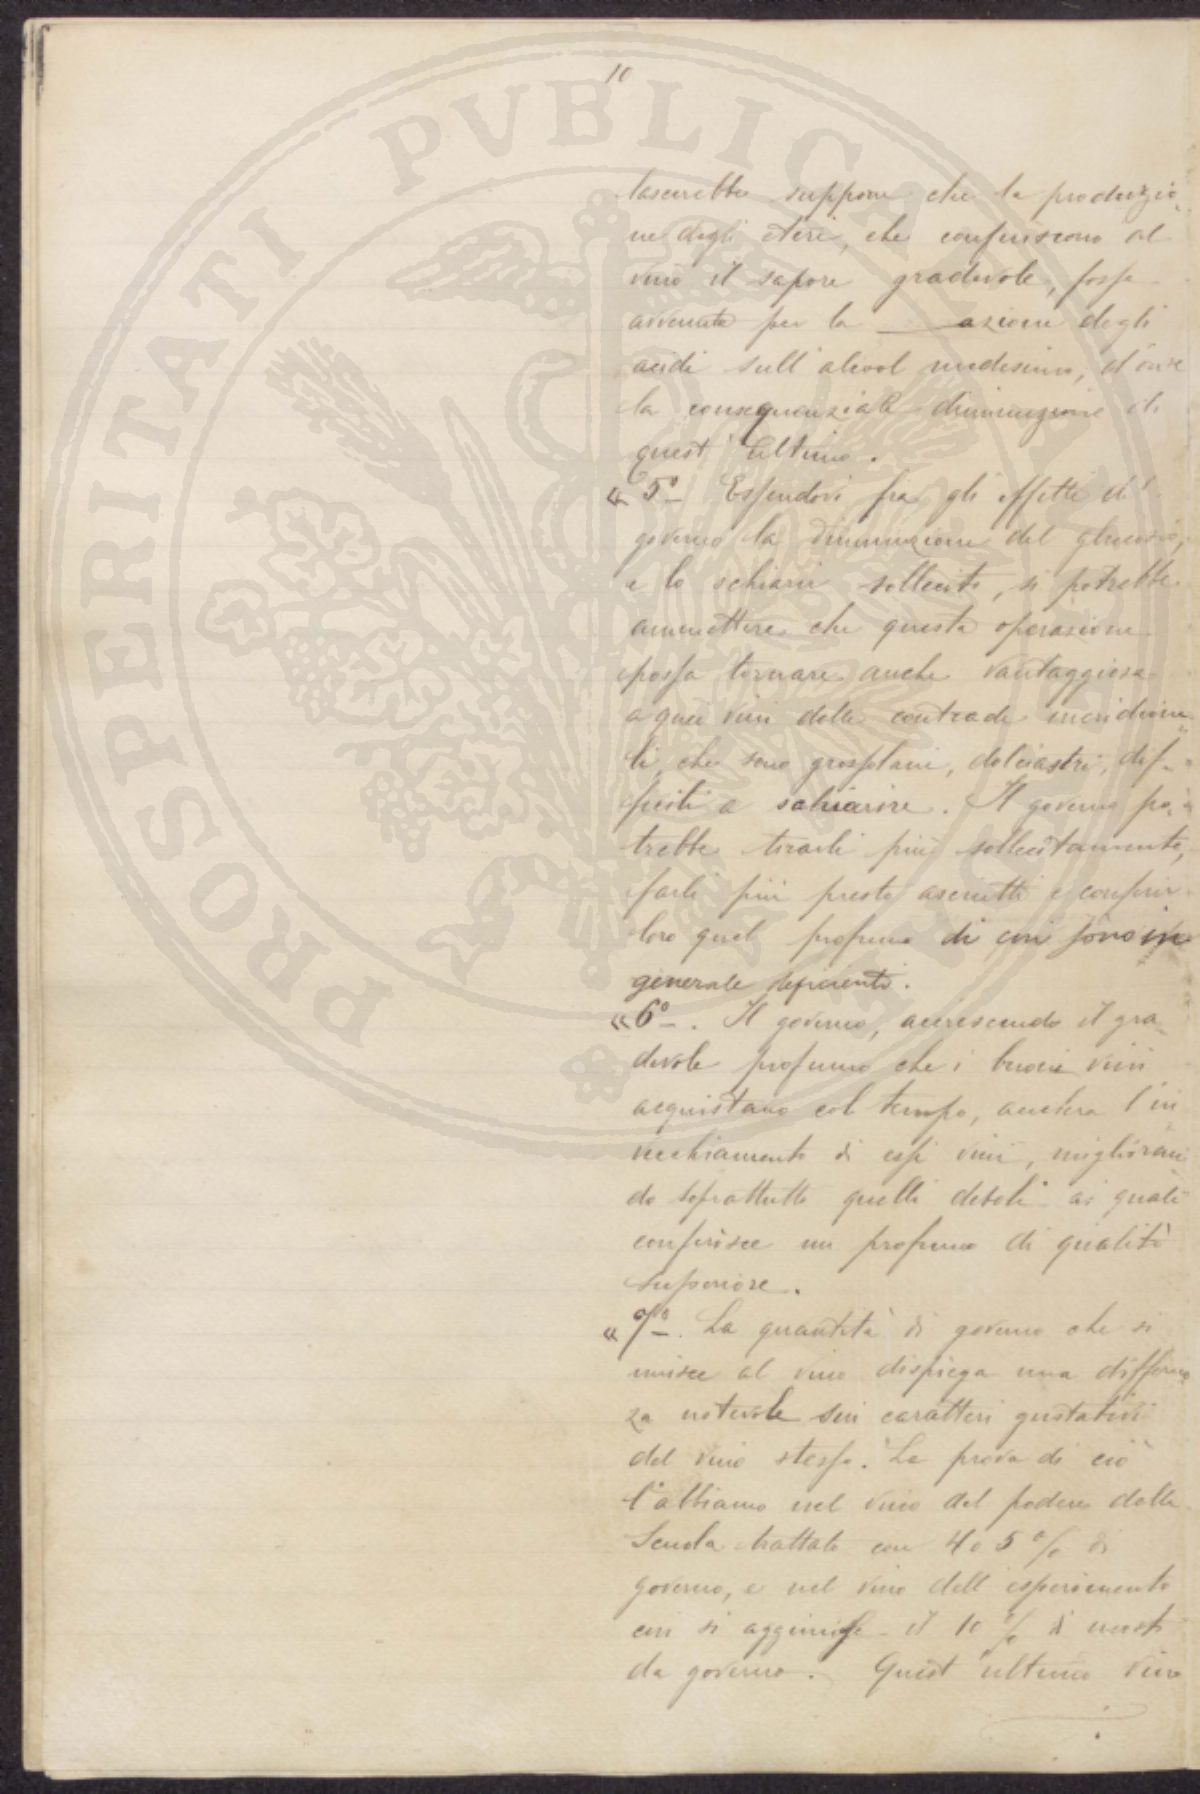 10
lascerebbe supporre che la produzio-
ne degli eteri, che conferiscono al
vino il sapore gradevole, fosse
avvenuta per la azione degli
acidi sull'alcool medesimo, d'onde
la consequenziale diminuzione di
quest'ultimo.
« 5° Essendovi fra gli effetti del
governo la diminuzione del glucosio,
e lo schiarir sollecito, si potrebbe
ammettere che questa operazione
possa tornare anche vantaggiosa
a quei vini delle contrade meridiona-
li, che sono grossolani, dolciastri, dif-
ficili a schiarire. Il governo po-
trebbe tirarli più sollecitamente,
farli più presto asciutti e conferir
loro quel profumo di cui sono in
generale deficienti.
« 6° . Il governo, accrescendo il gra-
devole profumo che i buoni vini
acquistano col tempo, accelera l'in
vecchiamento di essi vini, miglioran
do soprattutto quelli deboli ai quali
conferisce un profumo di qualità
superiore.
« 7° . La quantità di governo che si
unisce al vino dispiega una differen
za notevole sui caratteri gustativi
del vino stesso. La prova di ciò
l'abbiamo nel vino del podere della
Scuola trattato con 4 o 5 % di
governo, e nel vino dell'esperimento
cui si aggiunse il 10 % di mosto
da governo. Quest'ultimo vino
PROSPERITATI PVBLICAE